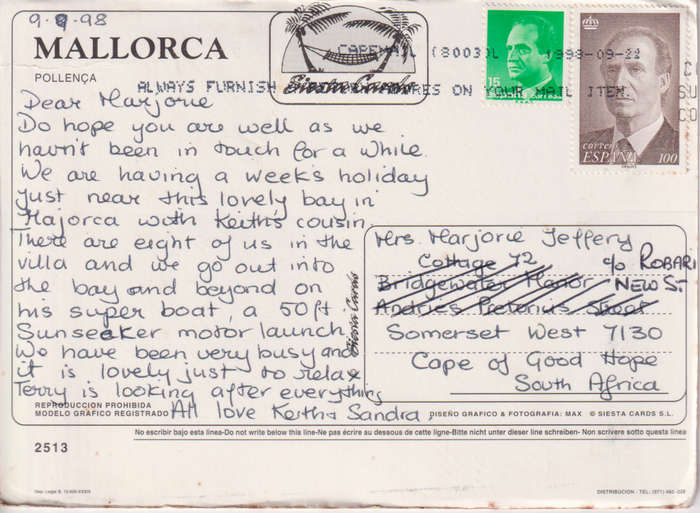 9.9.98
MALLORCA
POLLENÇA
Siesta Cards
CAPEMAIL (8003) 1998-09-22
ALWAYS FURNISH ON YOUR MAIL ITEM.
15
correos
ESPAÑA 100
Dear Marjorie
Do hope you are well as we
havn't been in touch for a while.
We are having a weeks holiday
just near this lovely bay in
Majorca with Keith's cousin.
There are eight of us in the
villa and we go out into
the bay and beyond on
his super boat, a 50ft
Sunseeker motor launch.
We have been very busy and
it is lovely just to relax
Terry is looking after everything
All love Keith & Sandra
Siesta Cards
Mrs. Marjorie Jeffery
Cottage 72 c/o ROBARI
Bridgewater Manor NEW ST.
Andries Pretorius Street
Somerset West 7130
Cape of Good Hope
South Africa
REPRODUCCION PROHIBIDA
MODELO GRAFICO REGISTRADO
DISEÑO GRAFICO & FOTOGRAFIA: MAX © SIESTA CARDS S.L.
No escribir bajo esta linea-Do not write below this line-Ne pas écrire au dessous de cette ligne-Bitte nicht unter dieser line schreiben- Non scrivere sotto questa linea
2513